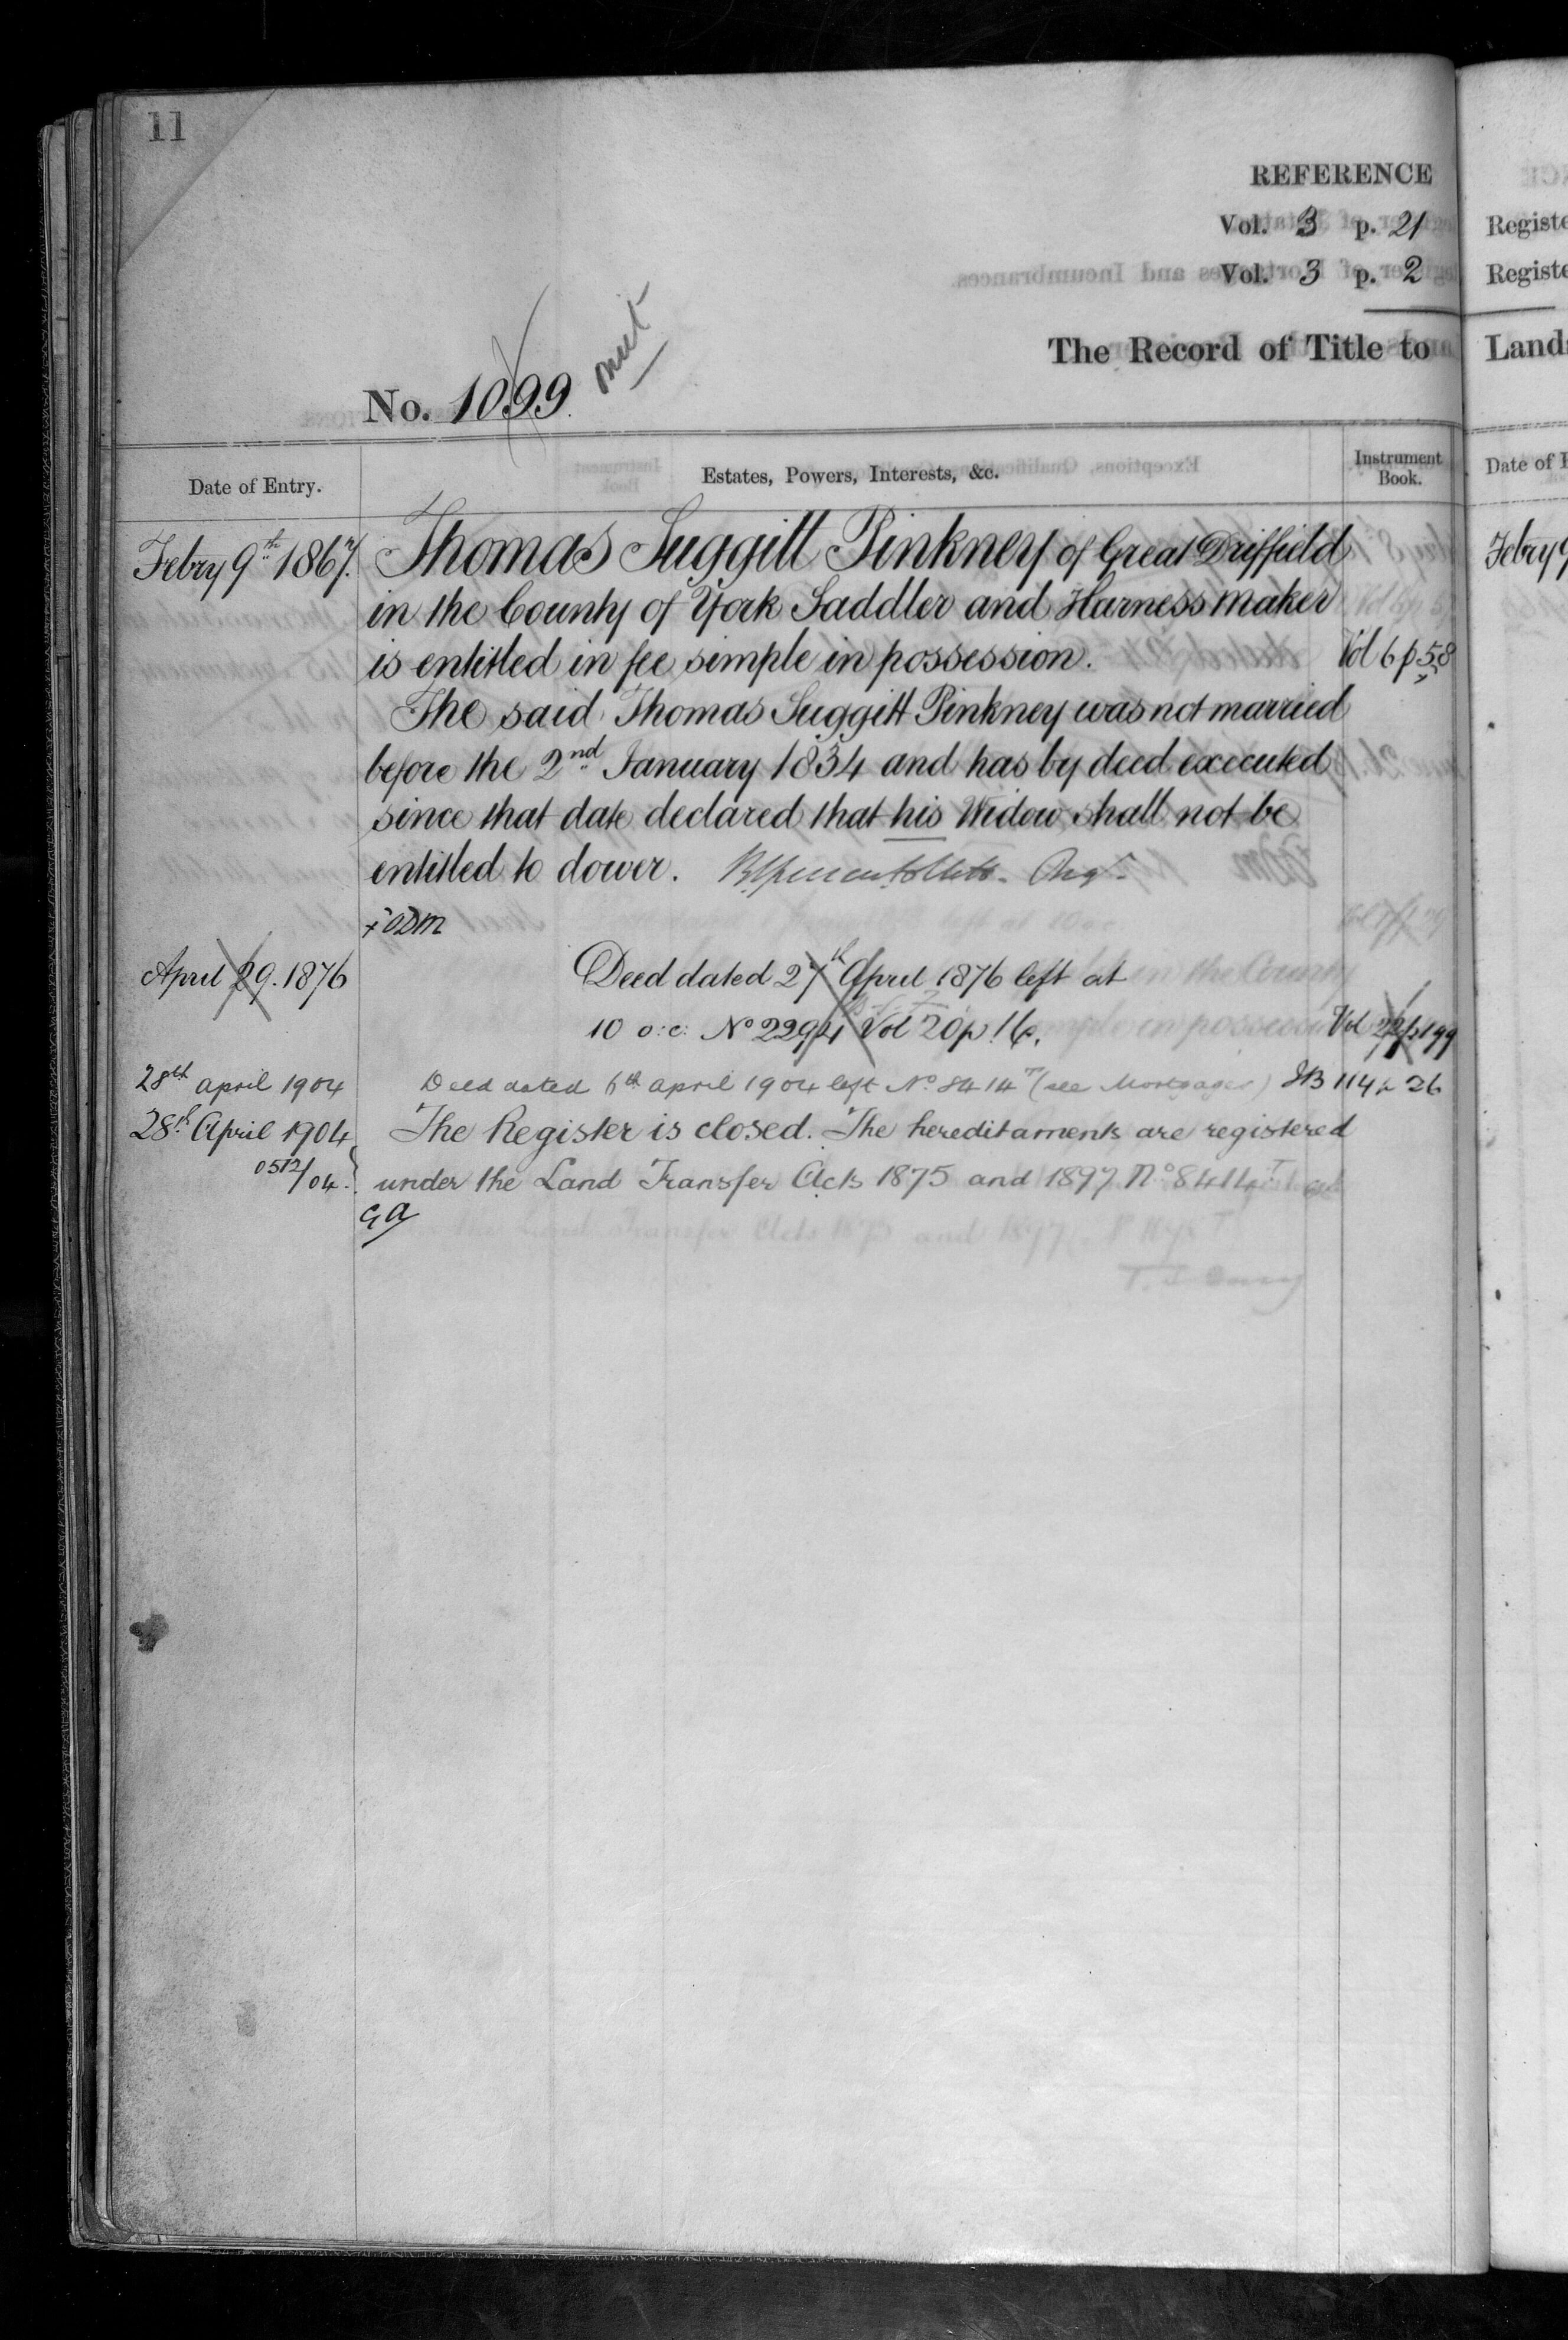 11
REFERENCE
Vol. 3 p. 21
Vol. 3 p. 2
The Record of Title to
No. 1099
Date of Entry. Estates, Powers, Interests, &c. Instrument Book.
Febry 9th 1867. Thomas Suggitt Pinkney of Great Driffield
in the County of York Saddler and Harness maker
is entitled in fee simple in possession. Vol 6 p 58
The said Thomas Suggitt Pinkney was not married
before the 2nd January 1834 and has by deed executed
since that date declared that his Widow shall not be
entitled to dower.
April 29. 1876 Deed dated 27th April 1876 left at
10 o:c: No 2294 Vol 20 p. 16. Vol 22 p 199
28th april 1904 Deed dated 6th april 1904 left No 8414 (see Mortgages) IB 114 p 26
28th April 1904 The Register is closed. The hereditaments are registered
0512/04. under the Land Transfer Acts 1875 and 1897 No 8414
GA
Registe
Registe
Land
Date of
Febry 9